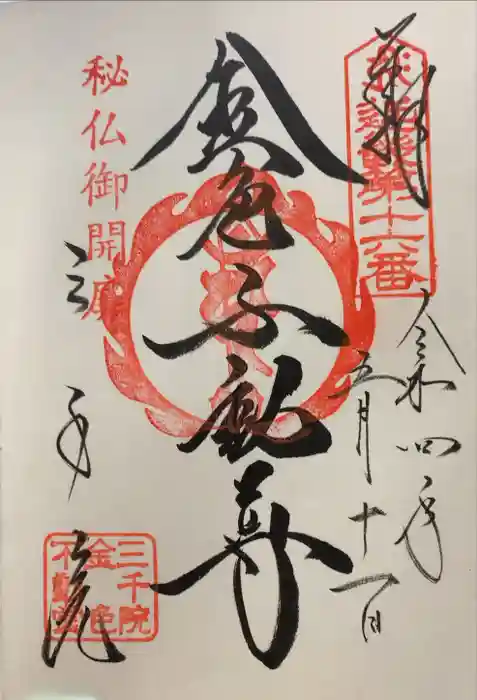 奉拝
第十六番
令和四年
五月十一日
金色不動尊
秘仏御開扉
三千院
三千院
金色
不動堂